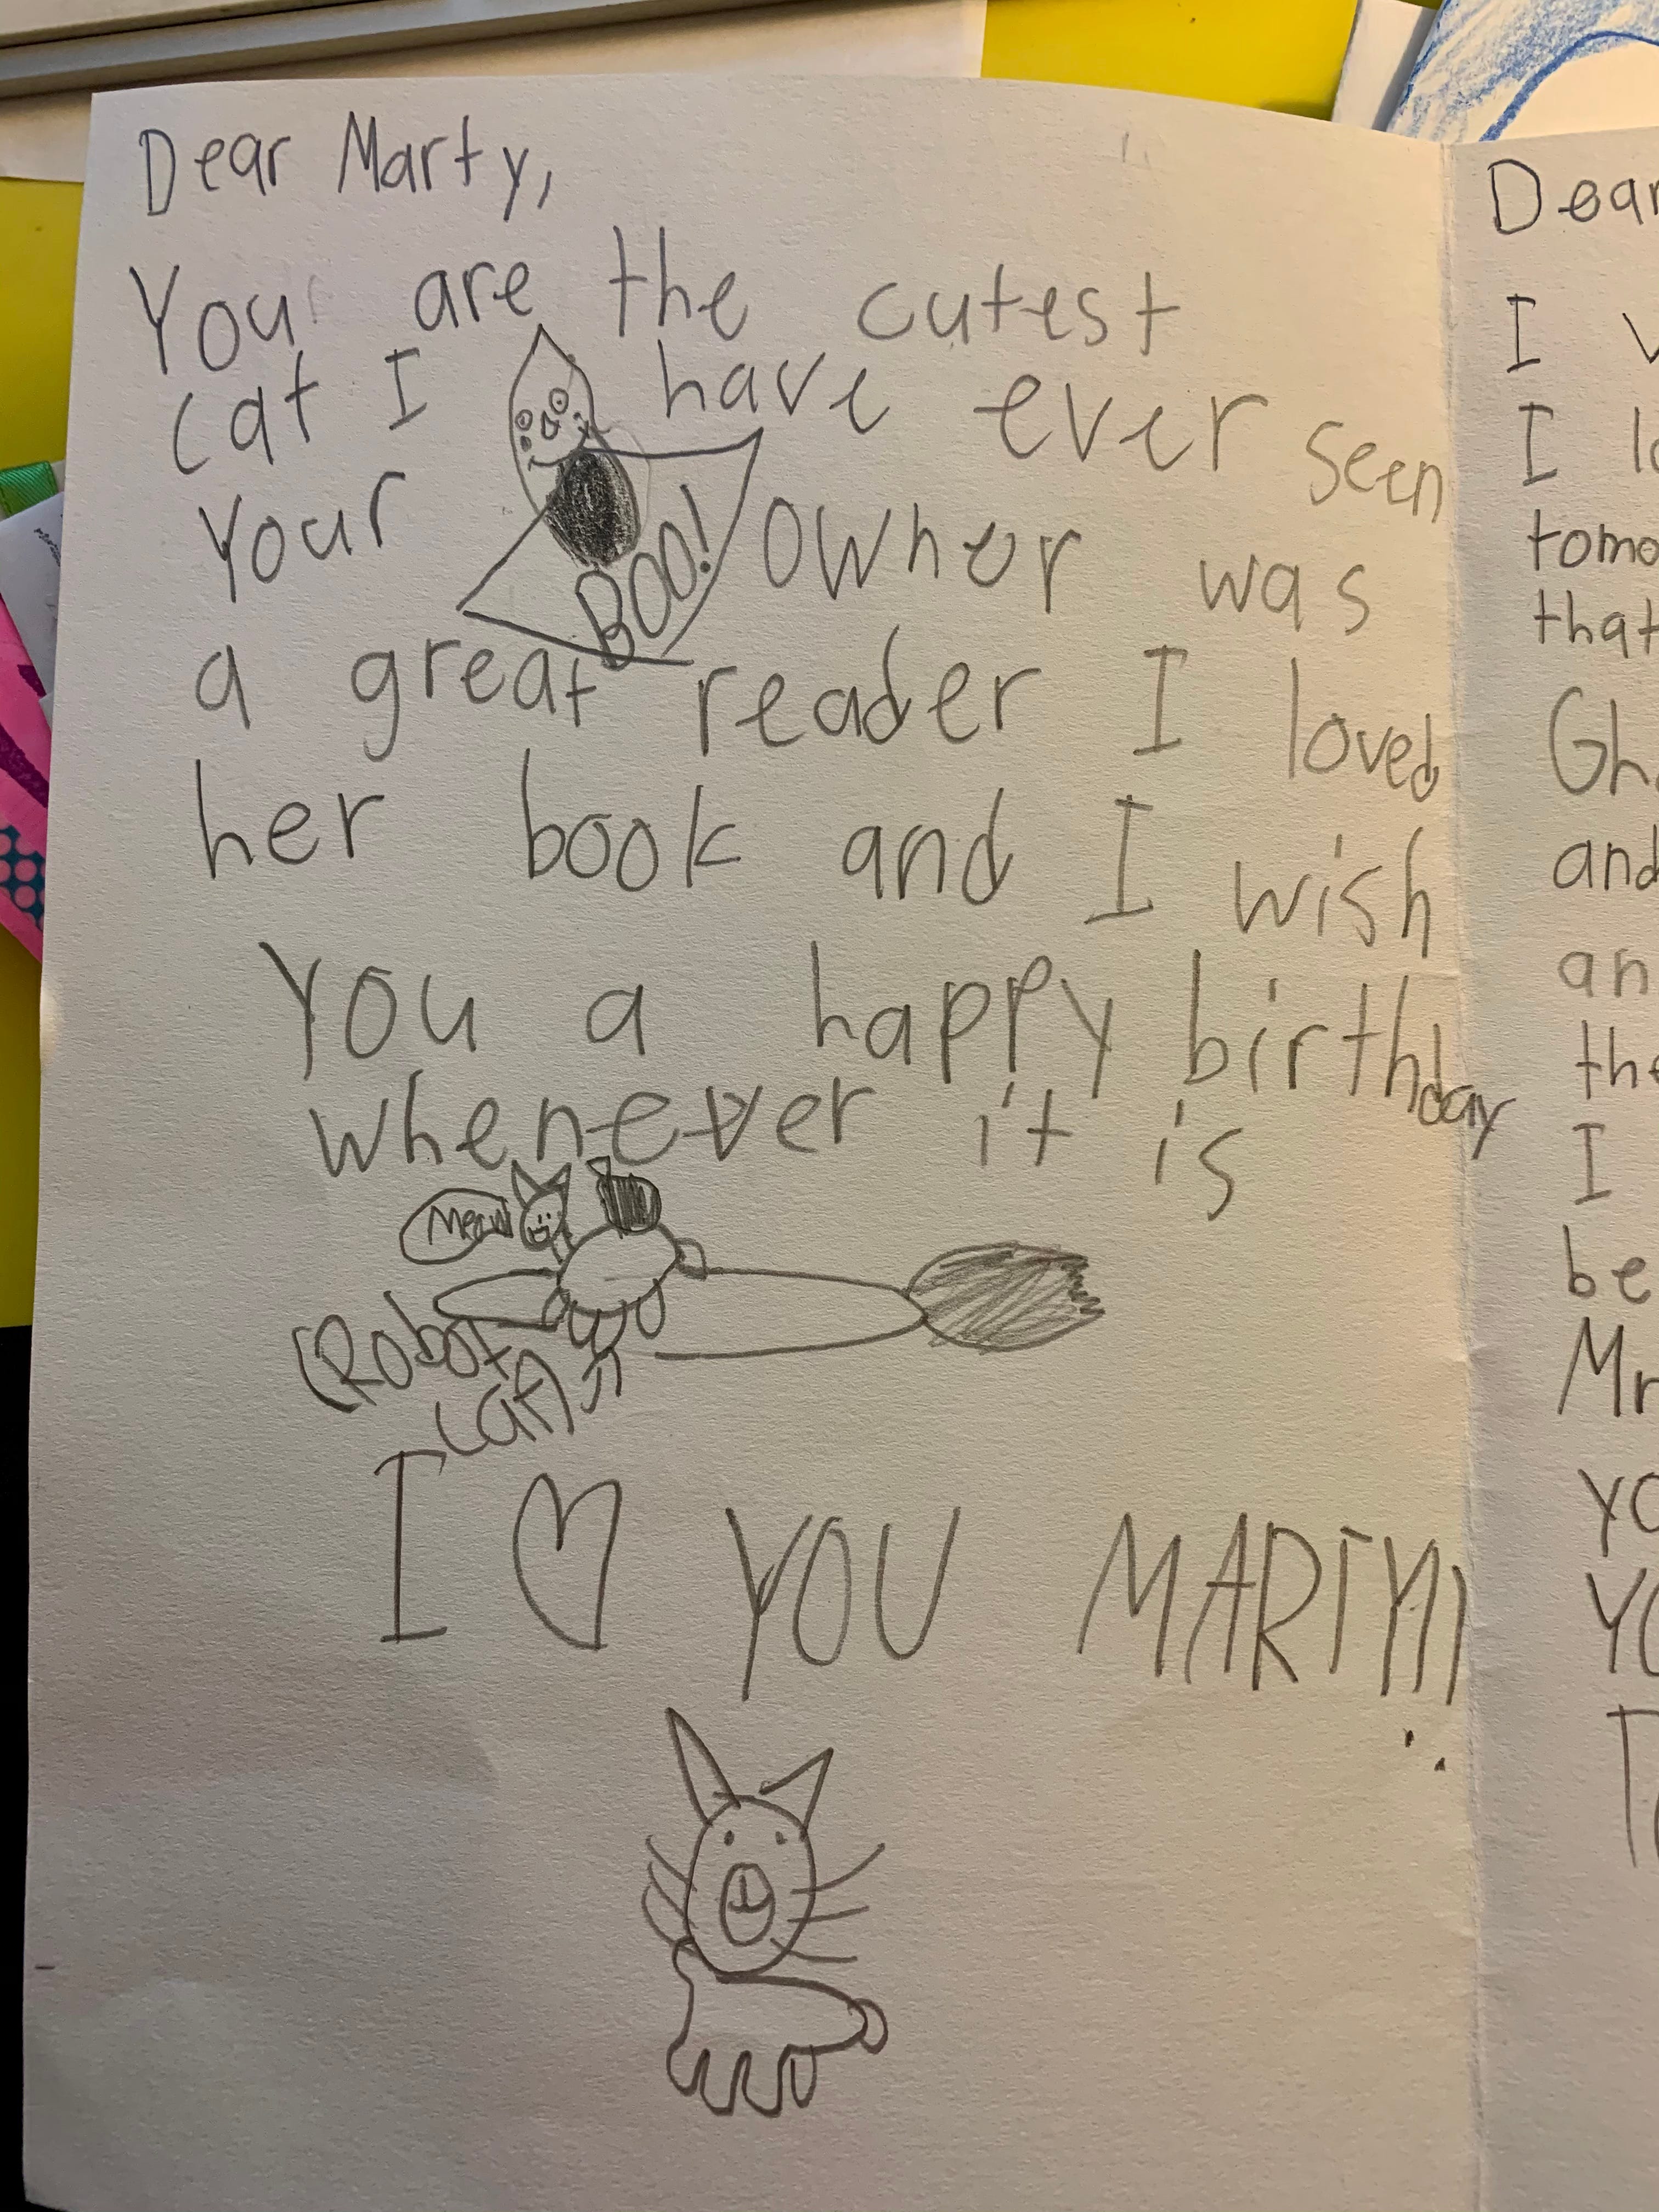 Dear Marty,
You are the cutest
cat I have ever seen
Your owner was
BOO!
a great reader I loved
her book and I wish
you a happy birthday
whenever it is
Meow
(Robot
cat)
I ♡ YOU MARTY!!
Dear
I
I lo
tomo
that
Gh
and
an
the
I
be
Mr
yo